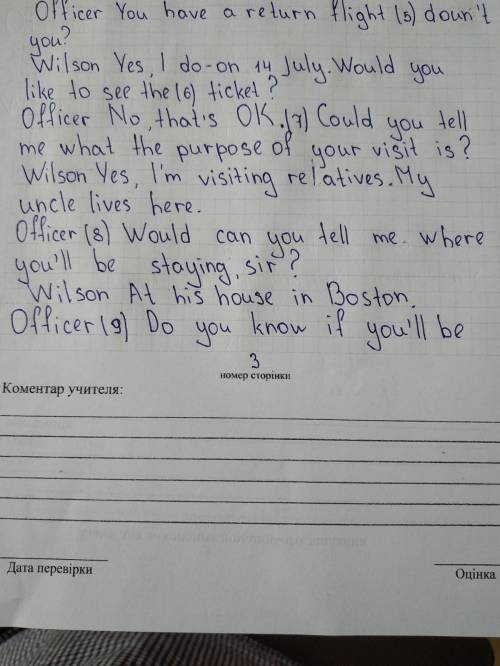 Officer You have a return flight (5) doun't
you?
Wilson Yes, I do-on 14 July. Would you
like to see the (6) ticket?
Officer No, that's OK. (7) Could you tell
me what the purpose of your visit is?
Wilson Yes, I'm visiting relatives. My
uncle lives here.
Officer (8) Would can you tell me where
you'll be staying, sir?
Wilson At his house in Boston.
Officer (9) Do you know if you'll be
3
номер сторінки
Коментар учителя:
Дата перевірки
Оцінка